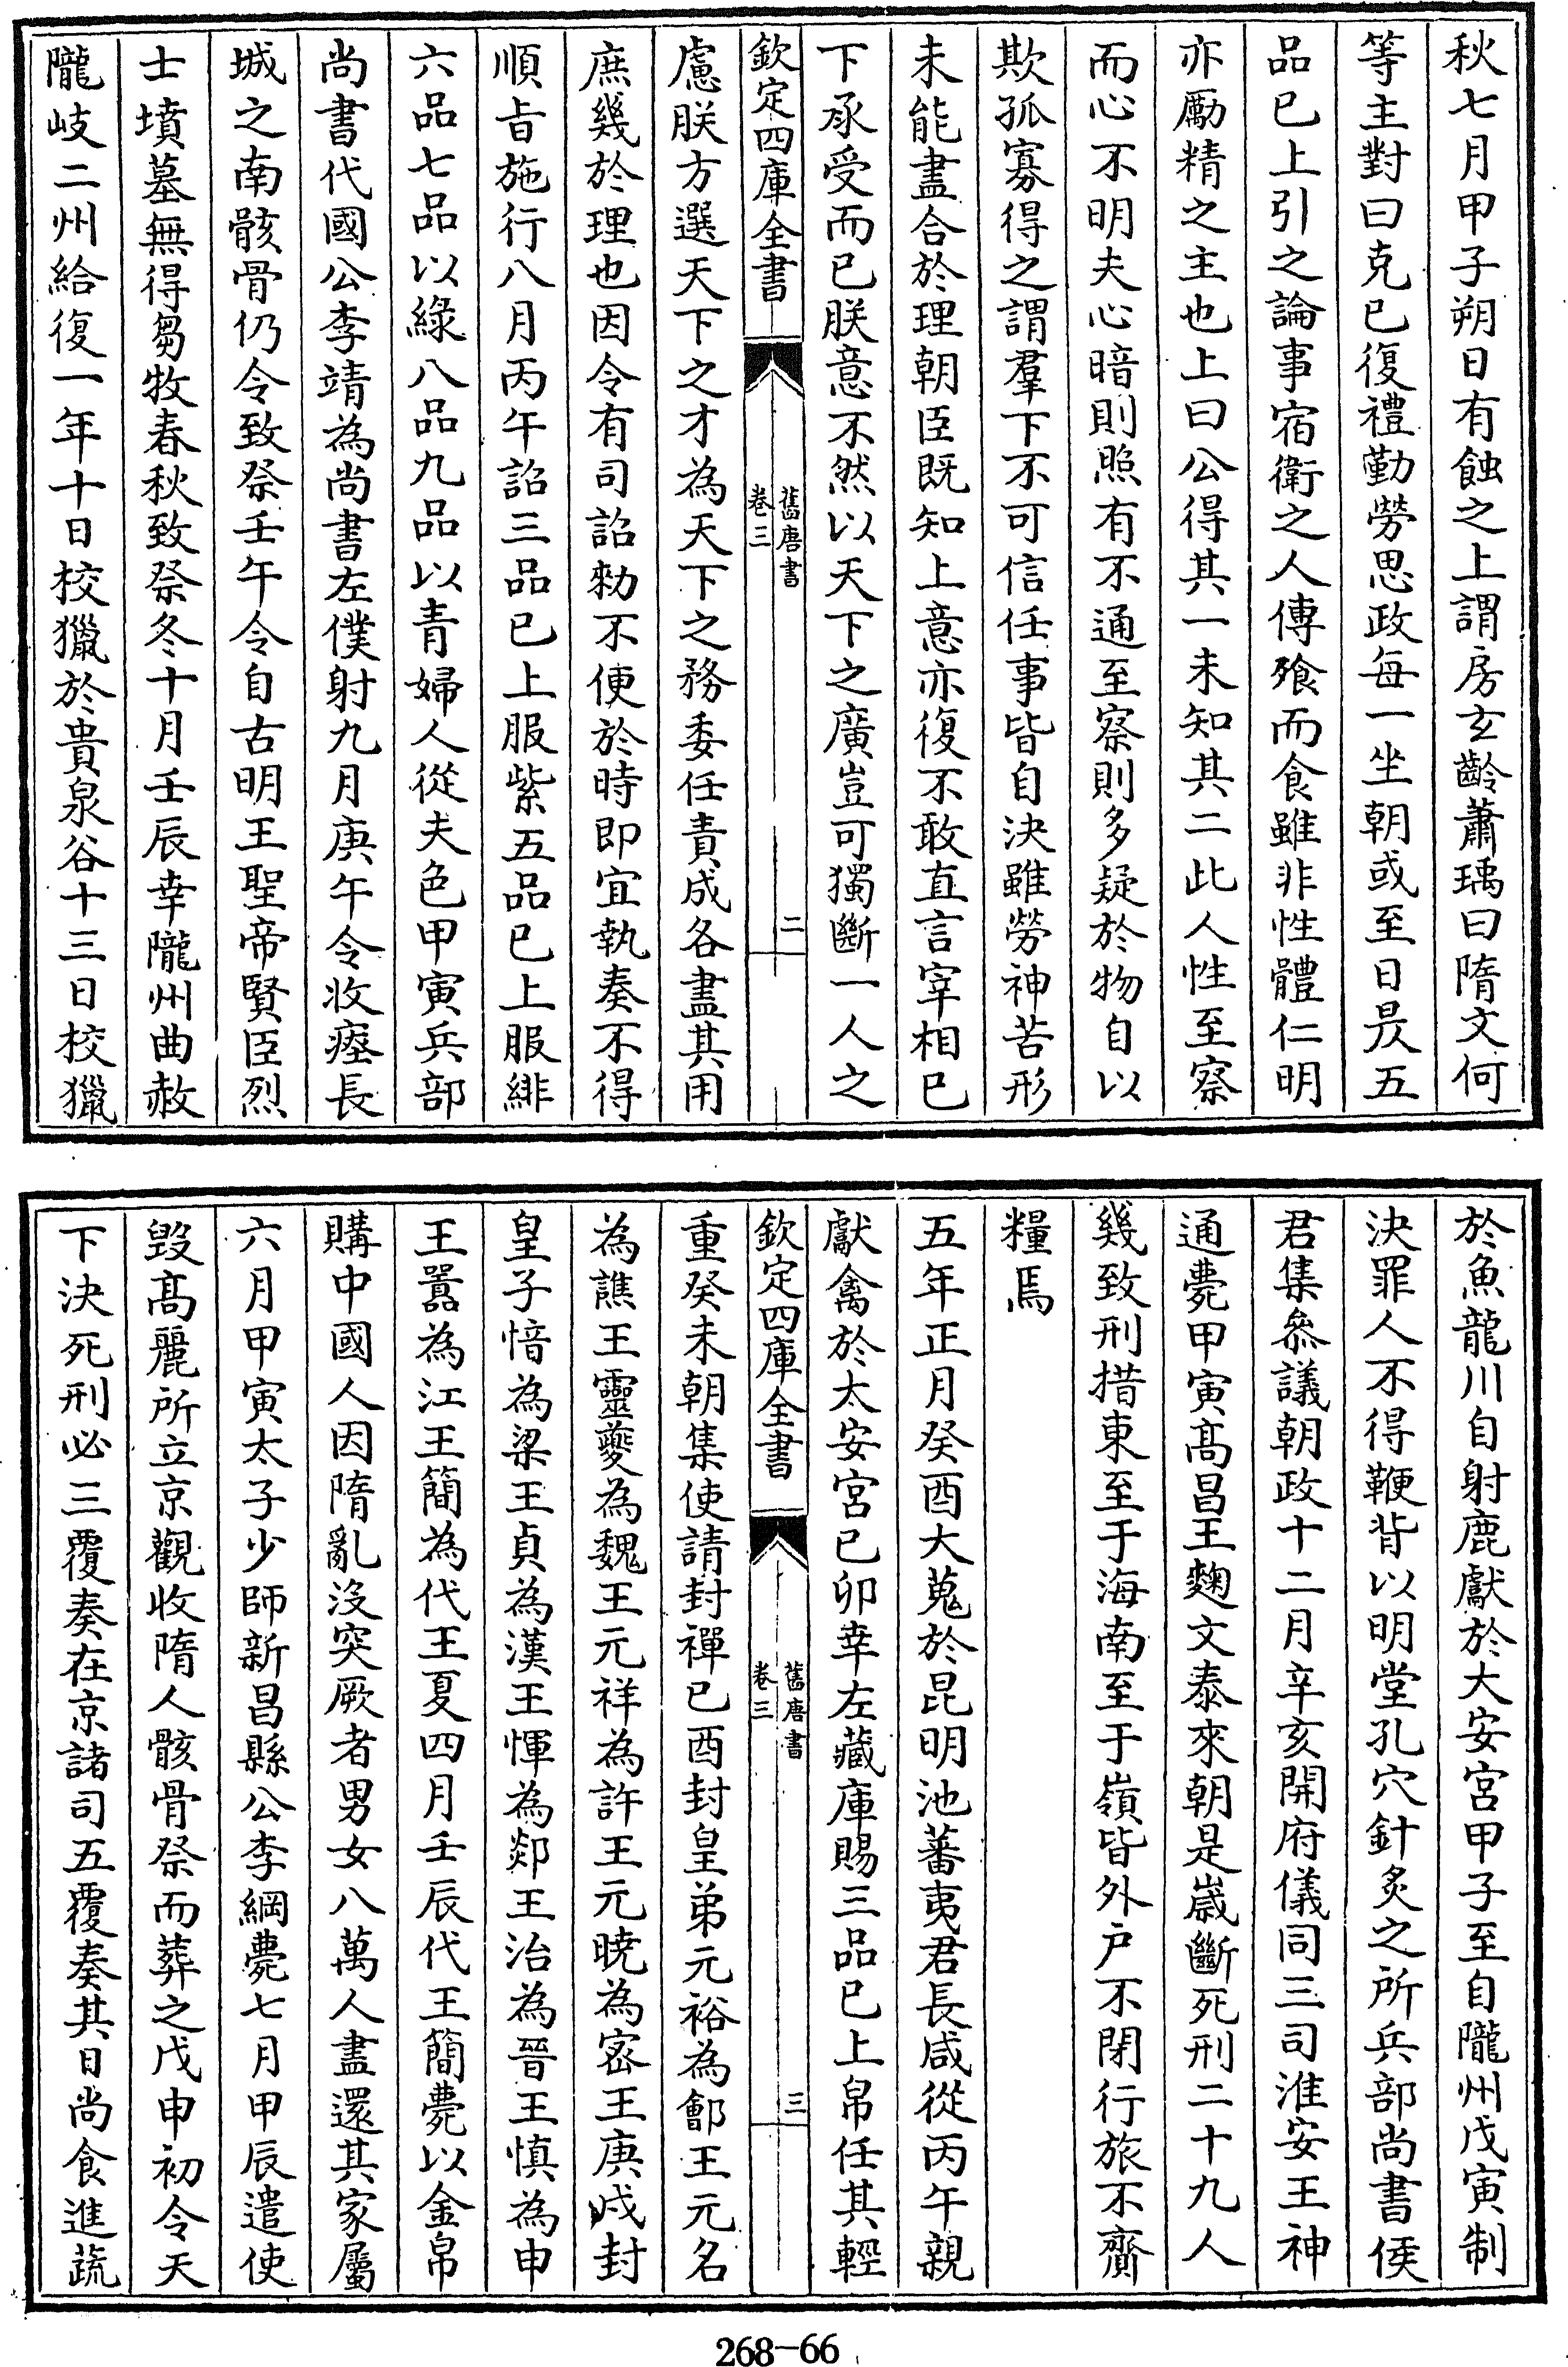 秋七月甲子朔日有蝕之上謂房玄齡蕭瑀曰隋文何
等主對曰克已復禮勤勞思政每一坐朝或至日昃五
品已上引之論事宿衛之人傳飱而食雖非性體仁明
亦勵精之主也上曰公得其一未知其二此人性至察
而心不明夫心暗則照有不通至察則多疑於物自以
欺孤寡得之謂羣下不可信任事皆自決雖勞神苦形
未能盡合於理朝臣既知上意亦復不敢直言宰相已
下承受而已朕意不然以天下之廣豈可獨斷一人之
欽定四庫全書
舊唐書
卷三
二
慮朕方選天下之才為天下之務委任責成各盡其用
庶幾於理也因令有司詔勑不便於時即宜執奏不得
順旨施行八月丙午詔三品已上服紫五品已上服緋
六品七品以綠八品九品以青婦人從夫色甲寅兵部
尚書代國公李靖為尚書左僕射九月庚午令收瘞長
城之南骸骨仍令致祭壬午令自古明王聖帝賢臣烈
士墳墓無得芻牧春秋致祭冬十月壬辰幸隴州曲赦
隴岐二州給復一年十日校獵於貴泉谷十三日校獵
於魚龍川自射鹿獻於大安宮甲子至自隴州戊寅制
決罪人不得鞭背以明堂孔穴針灸之所兵部尚書侯
君集叅議朝政十二月辛亥開府儀同三司淮安王神
通薨甲寅高昌王麴文泰來朝是歲斷死刑二十九人
幾致刑措東至于海南至于嶺皆外户不閉行旅不齎
糧焉
五年正月癸酉大蒐於昆明池蕃夷君長咸從丙午親
獻禽於太安宮已卯幸左藏庫賜三品已上帛任其輕
欽定四庫全書
舊唐書
卷三
三
重癸未朝集使請封禪已酉封皇弟元裕為鄶王元名
為譙王靈夔為魏王元祥為許王元曉為密王庚戌封
皇子愔為梁王貞為漢王惲為郯王治為晉王慎為申
王囂為江王簡為代王夏四月壬辰代王簡薨以金帛
購中國人因隋亂沒突厥者男女八萬人盡還其家屬
六月甲寅太子少師新昌縣公李綱薨七月甲辰遣使
毀高麗所立京觀收隋人骸骨祭而葬之戊申初令天
下決死刑必三覆奏在京諸司五覆奏其日尚食進蔬
268-66